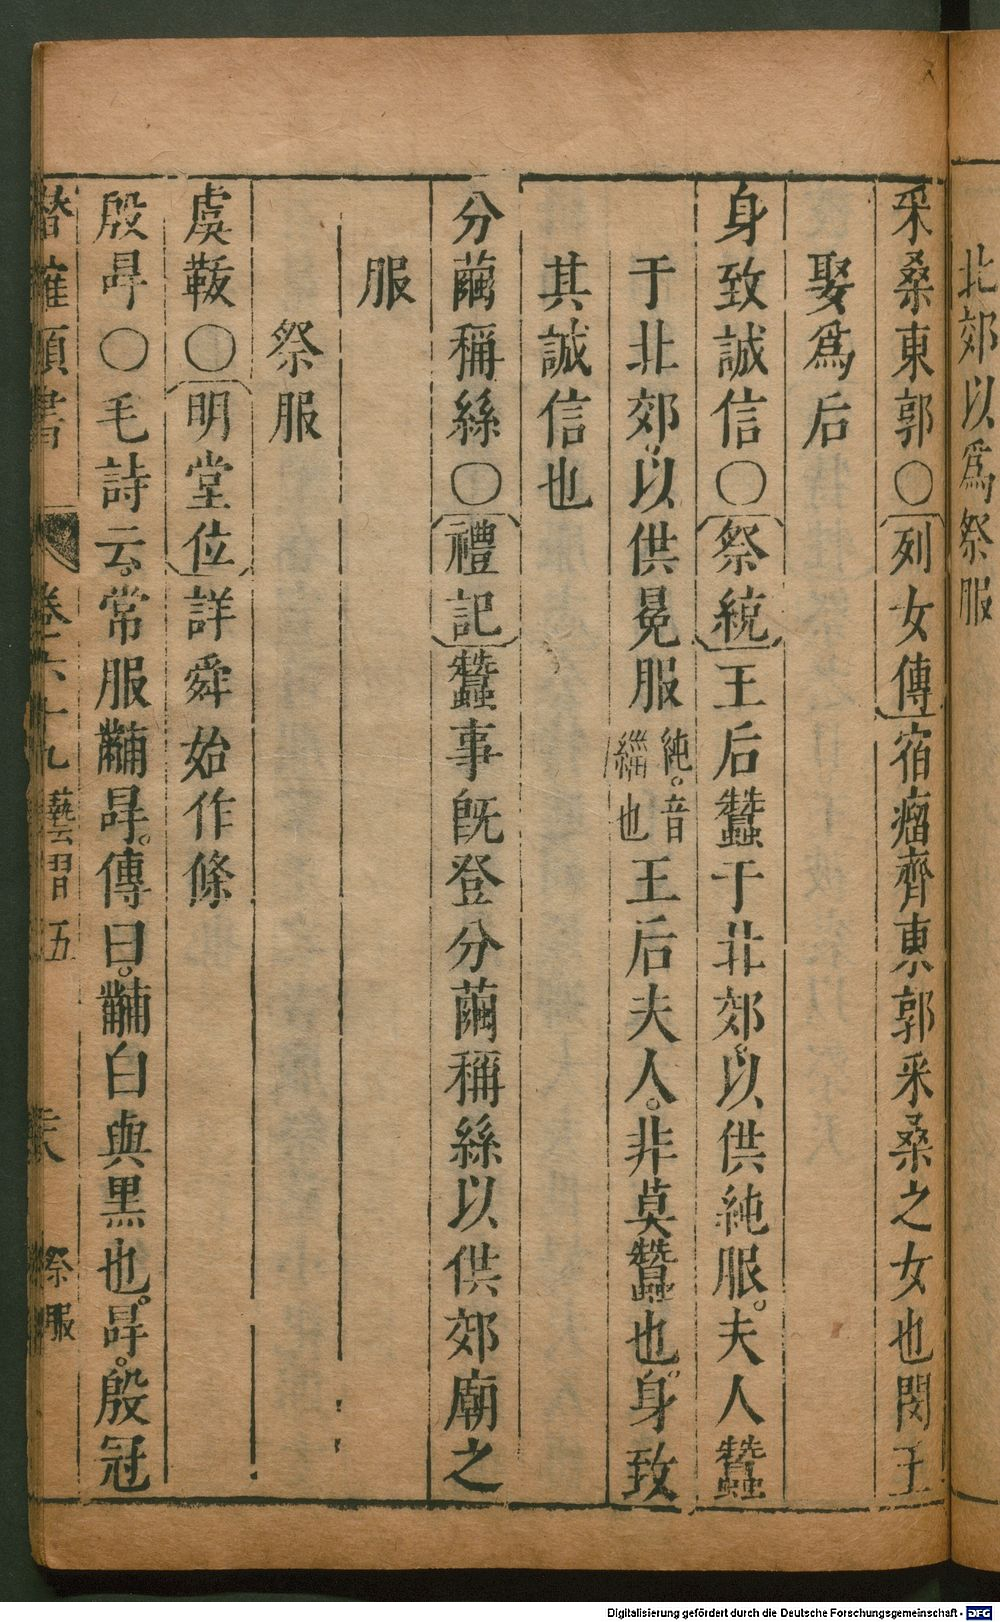 北郊以爲祭服
采桑東郭○列女傳宿瘤齊東郭采桑之女也閔王
娶爲后
身致誠信○祭統王后蠶于北郊以供純服。夫人蠶
于北郊。以供冕服純。音緇也王后夫人。非莫蠶也。身致
其誠信也
分繭稱絲○禮記蠶事既登分繭稱絲以供郊廟之
服
祭服
虞韍○明堂位詳舜始作條
殷冔○毛詩云。常服黼冔。傳曰。黼白與黑也。冔。殷冠
潛確類書 卷六十九 藝習五 祭服
Digitalisierung gefördert durch die Deutsche Forschungsgemeinschaft - DFG